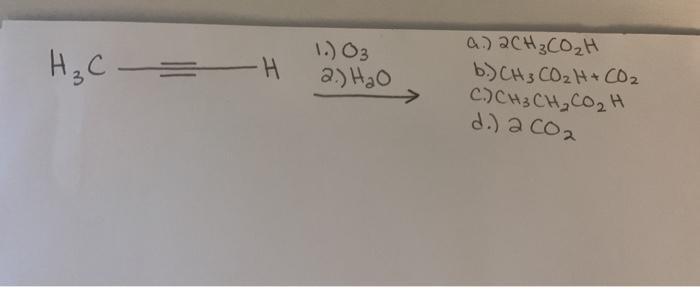 H₃C —≡— H
1.) O₃
2.) H₂O
a.) 2CH₃CO₂H
b.) CH₃CO₂H + CO₂
C.) CH₃CH₂CO₂H
d.) 2 CO₂